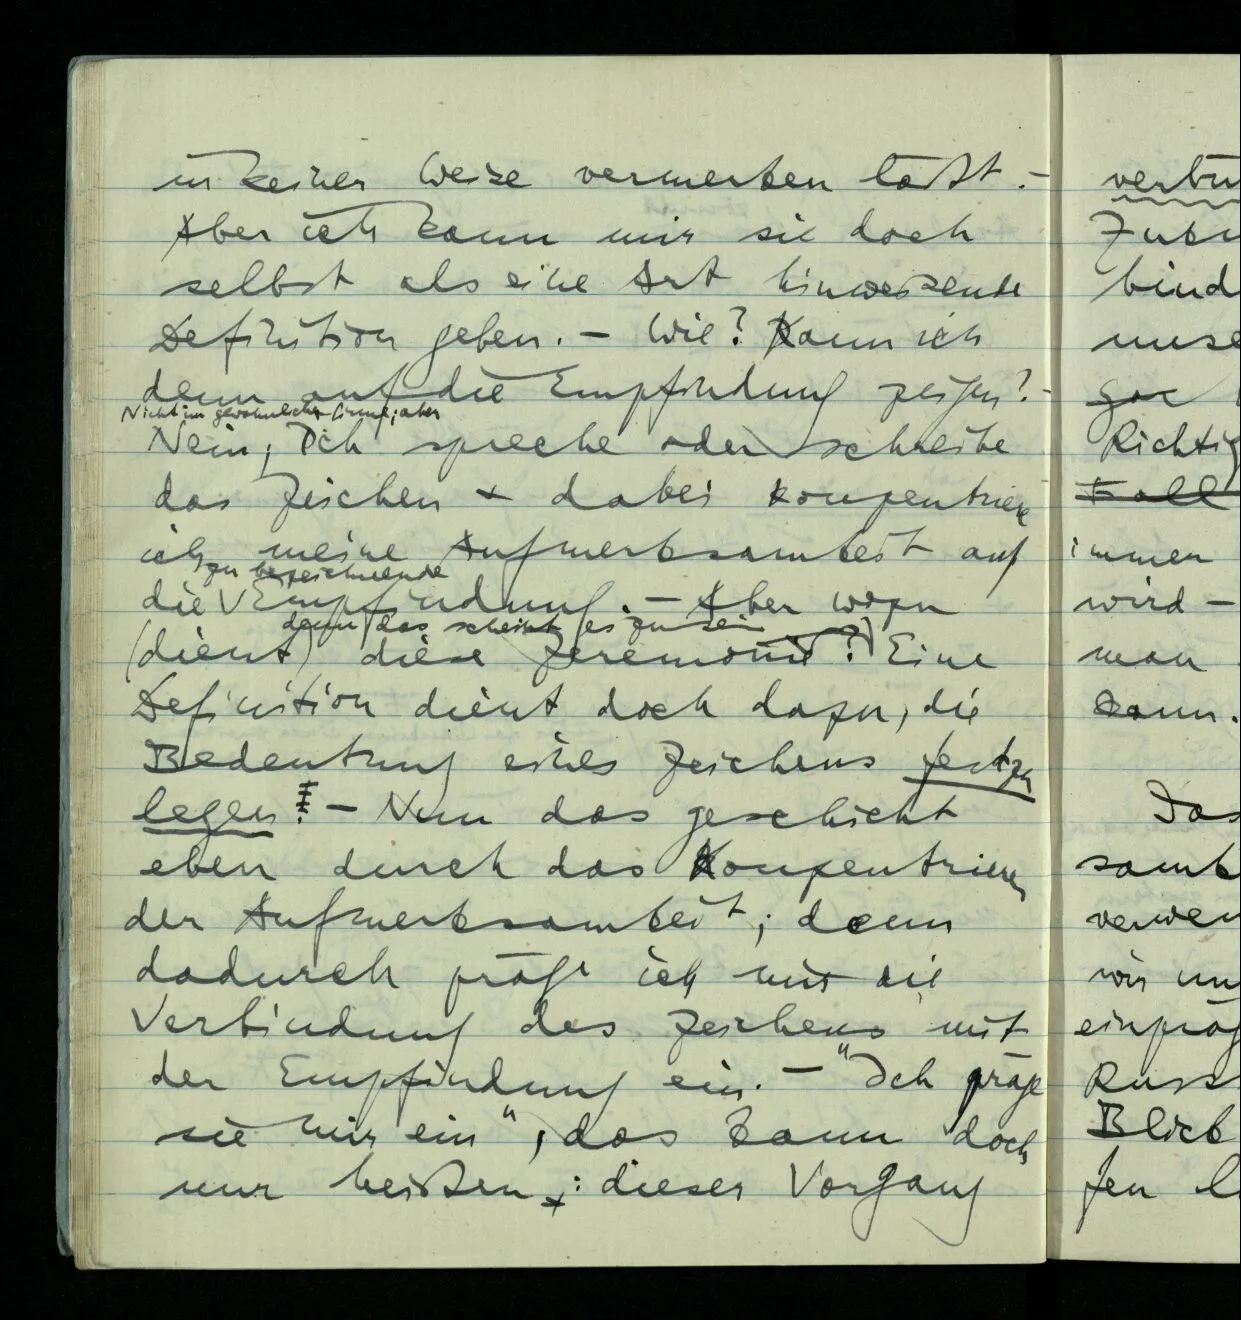 in keiner Weise vermerken läßt. –
Aber ich kann mir sie doch
selbst als eine Art hinweisende
Definition geben. – Wie? Kann ich
denn auf die Empfindung zeigen? –
Nicht im gewöhnlichen Sinne; aber
Nein, Ich spreche oder schreibe
das Zeichen & dabei konzentriere
ich meine Aufmerksamkeit auf
zu bezeichnende
die Empfindung. – Aber wozu
denn das scheint es zu sein
(dient) diese Zeremonie?) Eine
Definition dient doch dazu, die
Bedeutung eines Zeichens festzu
legen! – Nun das geschieht
eben durch das Konzentrieren
der Aufmerksamkeit; denn
dadurch präge ich mir die
Verbindung des Zeichens mit
der Empfindung ein. – "Ich präge
sie mir ein", das kann doch
nur heißen: dieser Vorgang
verbin
Zuku
bind
unse
gar
Richtig
Fall
immer
wird –
man
kann.
Das
samk
verwen
wir un
einpräg
Russ
Blick
fen